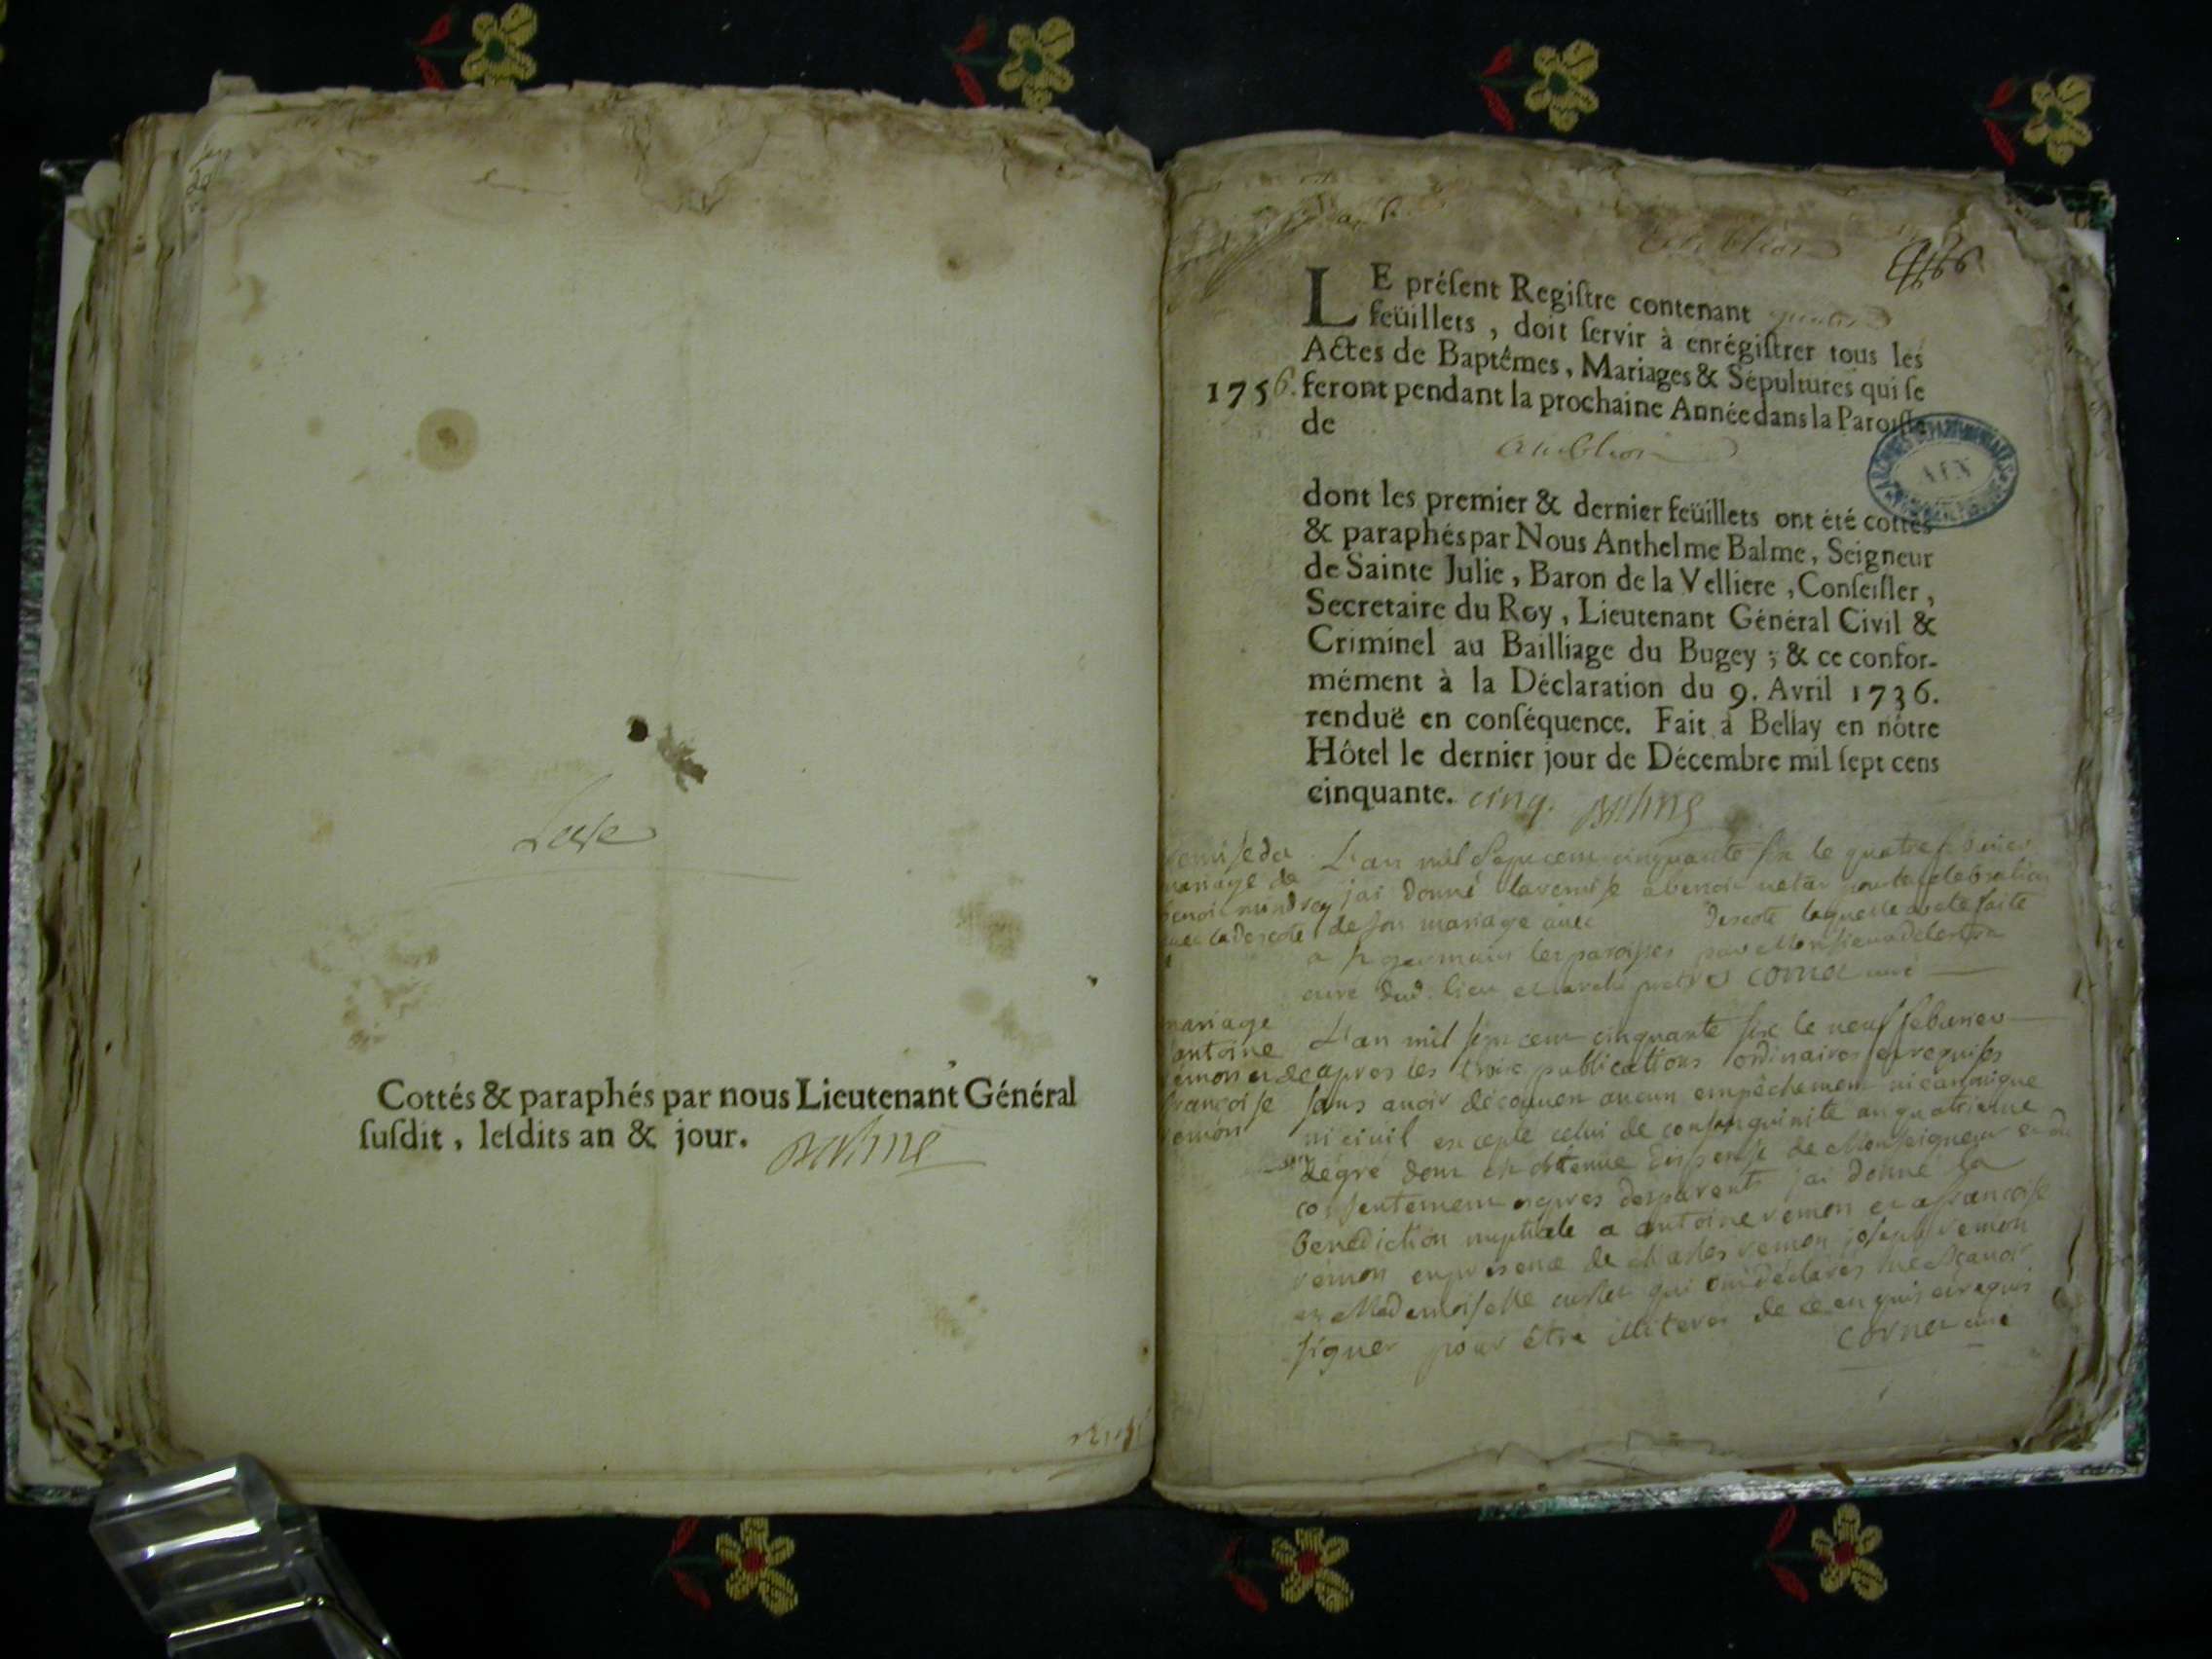 Cottés & paraphés par nous Lieutenant Général
ſuſdit, leſdits an & jour. Balme
LE préſent Regiſtre contenant quatre
feüillets, doit ſervir à enrégiſtrer tous les
Actes de Baptêmes, Mariages & Sépultures qui ſe
1756. feront pendant la prochaine Année dans la Paroiſſe
de
AIN
dont les premier & dernier feüillets ont été cottés
& paraphés par Nous Anthelme Balme, Seigneur
de Sainte Julie, Baron de la Velliere, Conſeiller,
Secretaire du Roy, Lieutenant Général Civil &
Criminel au Bailliage du Bugey ; & ce confor-
mément à la Déclaration du 9. Avril 1736.
renduë en conſéquence. Fait à Bellay en nôtre
Hôtel le dernier jour de Décembre mil ſept cens
cinquante. cinq. Balme
remise du
mariage de
benoit
avec la descote
L'an mil sept cent cinquante six le quatre fevrier
j'ai donné la remise a benoit pour la celebration
de son mariage avec descote laquelle a eté faite
a st germain les paroisses par Monsieur
curé dud. lieu et archipretre cornet curé
mariage
antoine
vemon et de
francoise
vemon
L'an mil sept cent cinquante six le neuf febvrier
apres les trois publications ordinaires et requises
sans avoir decouvert aucun empêchement ni canonique
ni civil excepté celui de consanguinité au quatrieme
degré dont ils ont obtenue dispense de Monseigneur et du
consentement expres des parents j'ai donné la
benediction nuptiale a antoine vemon et a francoise
vemon en presence de charles vemon joseph vemon
et Mademoiselle qui ont declarés ne sçavoir
signer pour être illiterés de ce enquis et requis
cornet curé